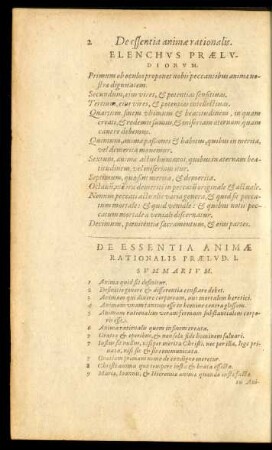 2 De essentia animæ rationalis.
ELENCHVS PRÆLV-
DIORVM.
Primum ob oculos proponet nobis peccantibus animæ no-
stra dignitatem.
Secundum, eius vires, & potentias sensitiuas.
Tertium, eius vires, & potentias intellectiuas.
Quartum finem vltimum & beatitudinem, in quam
creati, & redempti sumus, & in
canere debemus.
Quintum, animæ passiones & habitus, quibus in merita,
vel demerita mouemur.
Sextum, animæ actus humanos, quibus in æternam bea-
titudinem, vel miseriam itur.
Septimum, quæ sint merita, & demerita.
Octauum, de demeriti in peccati originale & actuale.
Nonum peccati actualis varia genera, & quid sit pecca-
tum mortale & quid veniale: & quibus notis pec-
catum mortale a veniali discernatur.
Decimum, pœnitentiæ sacramentum, & eius partes.
DE ESSENTIA ANIMÆ
RATIONALIS PRÆLVD. I.
SVMMARIVM.
1 Anima quid sit definitur.
2 Definitio genere & differentia constare debet.
3 Animam qui dixere corpoream, aut mortalem hæretici.
4 Animam vnam tantum esse in homine contra glossam.
5 Animam rationalem veram formam substantialem corpo-
ris esse.
6 Anima rationalis quem in finem creata.
7 Genere & operibus, & non fide sola hominem saluari.
7 Iustus sit nullus, nisi per merita Christi, nec per illa, lege pri-
uata, nisi sic & sic communicata.
7 Gratiam primam nemo de condigno meretur.
8 Christi anima quo tempore iusta & beata effecta.
9 Maria, Ioannis, & Hieremiæ anima quando iusta effecta.
10 Ani-